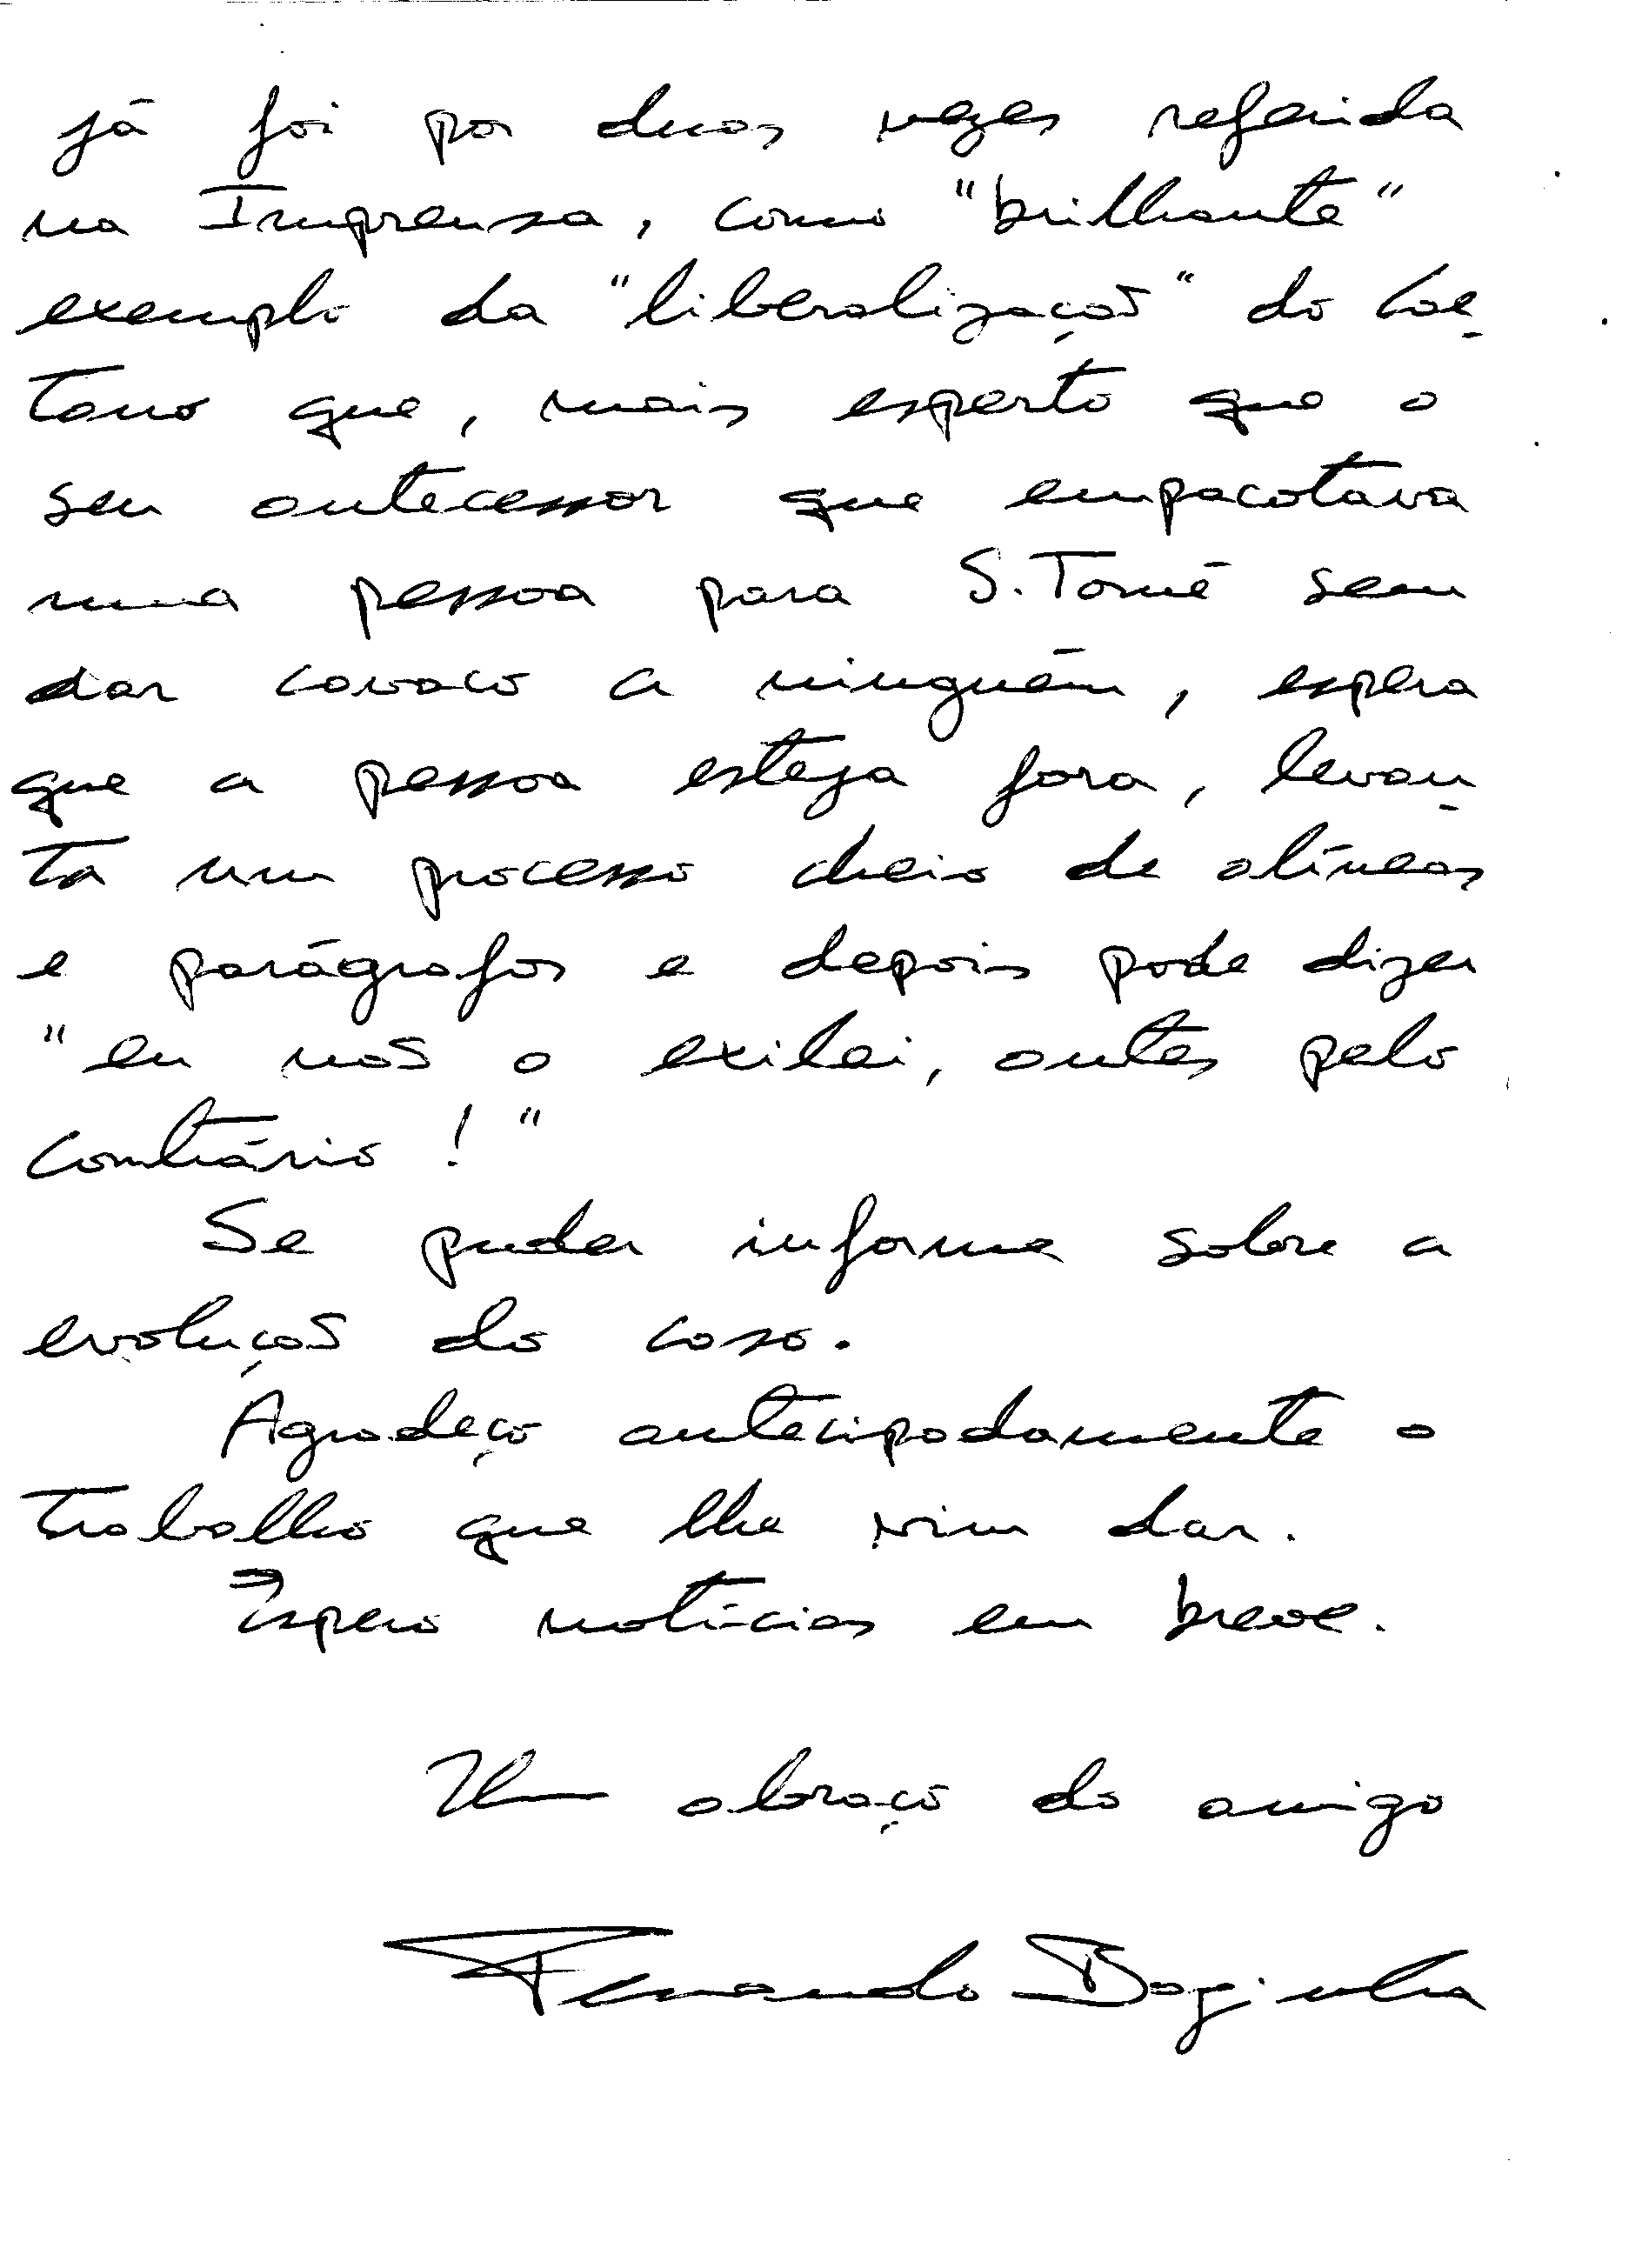 já foi por duas vezes referida
na Imprensa, como "brilhante"
exemplo da "liberalização" do Cae-
tano que, mais esperto que o
seu antecessor que empacotava
uma pessoa para S. Tomé sem
dar cavaco a ninguém, espera
que a pessoa esteja fora, levan-
ta um processo cheio de alíneas
e parágrafos e depois pode dizer
"eu não o exilei, antes pelo
contrário!"
Se puder informe sobre a
evolução do caso.
Agradeço antecipadamente o
trabalho que lhe vim dar.
Espero notícias em breve.
Um abraço do amigo
Fernando Baginha